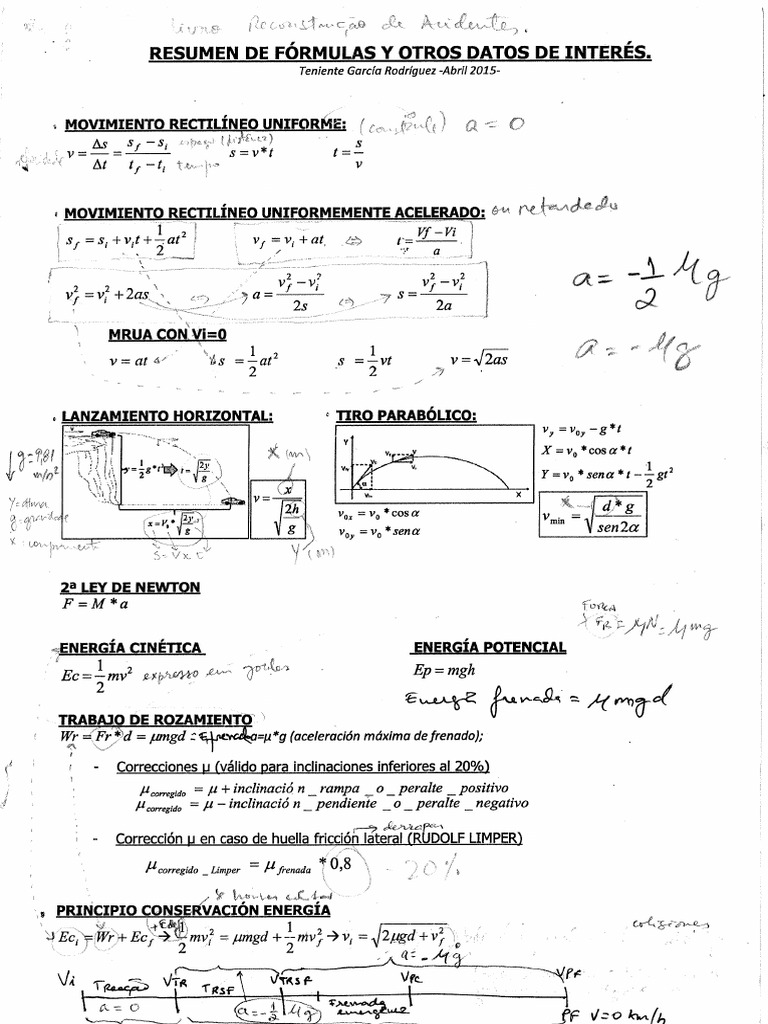 livro Reconstrução de Acidentes.
RESUMEN DE FÓRMULAS Y OTROS DATOS DE INTERÉS.
Teniente García Rodríguez -Abril 2015-
MOVIMIENTO RECTILÍNEO UNIFORME: (constante) a = 0
velocidade v = Δs/Δt = (s_f − s_i)/(t_f − t_i) espaço (distância) tempo s = v*t t = s/v
MOVIMIENTO RECTILÍNEO UNIFORMEMENTE ACELERADO: ou retardado
s_f = s_i + v_i t + 1/2 at² v_f = v_i + at ⇔ t = (Vf − Vi)/a
a = -1/2 μg
v_f² = v_i² + 2as ⇔ a = (v_f² − v_i²)/2s ⇔ s = (v_f² − v_i²)/2a
MRUA CON Vi=0
a = -μg
v = at s = 1/2 at² s = 1/2 vt v = √2as
LANZAMIENTO HORIZONTAL: TIRO PARABÓLICO:
v_y = v_0y − g*t
X = v_0 * cos α * t
Y = v_0 * sen α * t − 1/2 gt²
v_min = √(d*g / sen2α)
g = 9,81 m/s²
y = 1/2 g*t² t = √(2y/g)
x = V_0 * √(2y/g)
S = V x t
x (m)
v = x / √(2h/g)
y (m)
Y = altura
g = gravidade
x = componente
Y
X
α
v_0x = v_0 * cos α
v_0y = v_0 * sen α
2ª LEY DE NEWTON
F = M * a
Forca
FR = μN = μmg
ENERGÍA CINÉTICA ENERGÍA POTENCIAL
Ec = 1/2 mv² expresso em joules Ep = mgh
Energia frenada = μmgd
TRABAJO DE ROZAMIENTO
Wr = Fr * d = μmgd = E frenada a=μ*g (aceleración máxima de frenado);
- Correcciones μ (válido para inclinaciones inferiores al 20%)
μ_corregido = μ + inclinació n _ rampa _ o _ peralte _ positivo
μ_corregido = μ − inclinació n _ pendiente _ o _ peralte _ negativo
- Corrección μ en caso de huella fricción lateral (RUDOLF LIMPER) → derrapen
μ_corregido_Limper = μ_frenada * 0,8 - 20%
PRINCIPIO CONSERVACIÓN ENERGÍA
colisiones
Ec_i = Wr + Ec_f → 1/2 mv_i² = μmgd + 1/2 mv_f² → v_i = √(2μgd + v_f²)
a = -μg
Vi Treação VTR TRSF VTRSF VPC VPF
a = 0 a = -1/2 μg Frenada emergence PF V=0 km/h